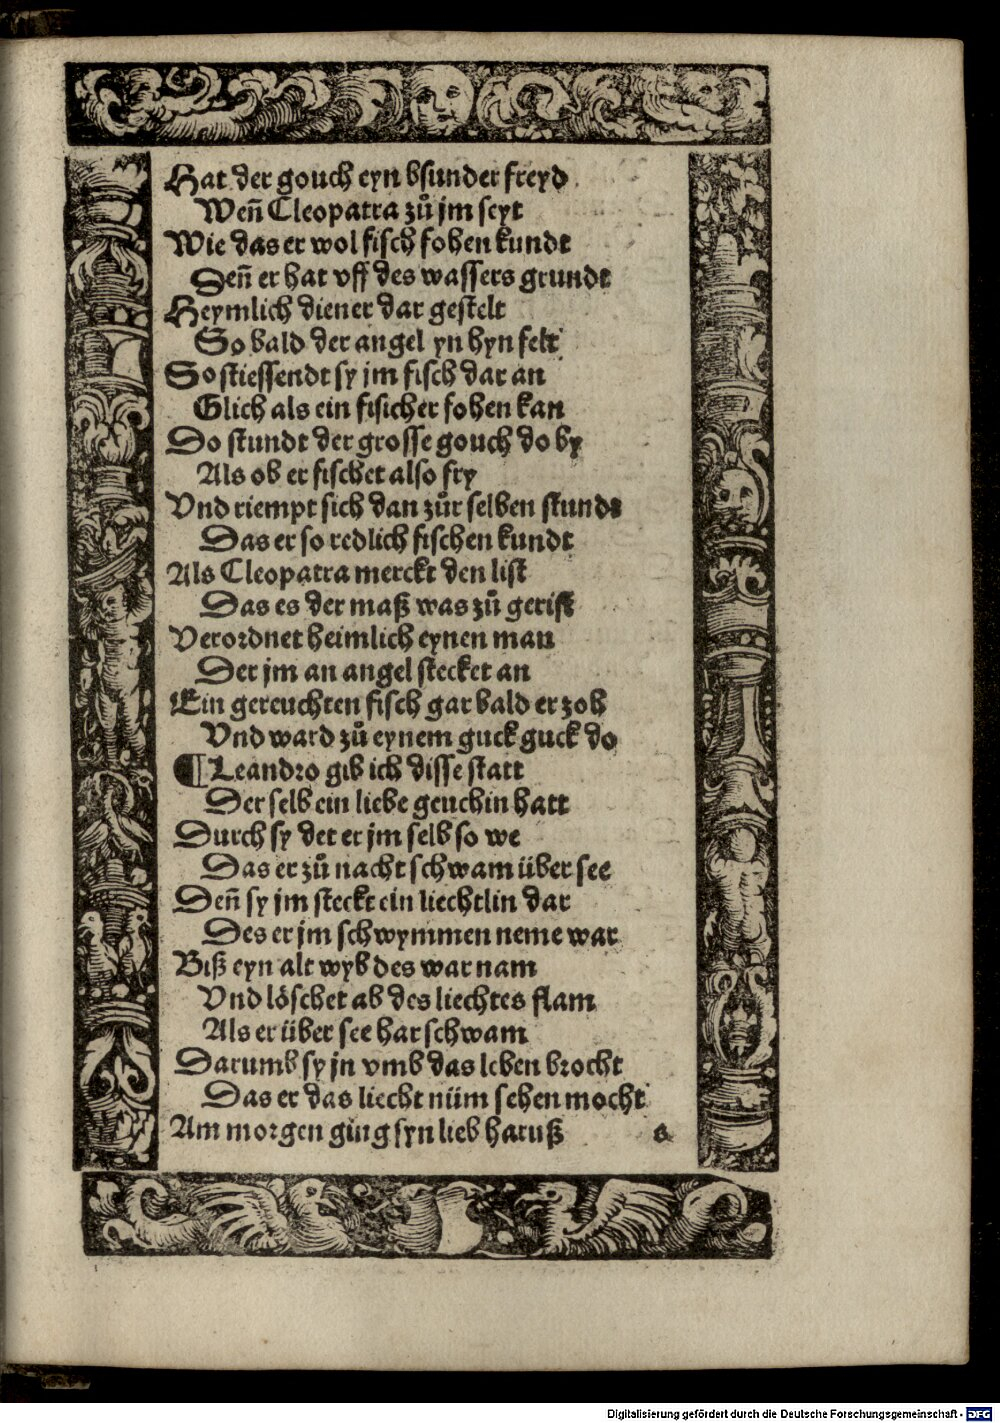 Hat der gouch eyn bsunder freyd
Weñ Cleopatra zů jm seyt
Wie das er wol fisch fohen kundt
Deñ er hat vff des wassers grundt
Heymlich diener dar gestelt
So bald der angel yn hyn felt
So stiessendt sy jm fisch dar an
Glich als ein fisicher fohen kan
Do stundt der grosse gouch do by
Als ob er fischet also fry
Vnd riempt sich dan zůr selben stundt
Das er so redlich fischen kundt
Als Cleopatra merckt den list
Das es der maß was zů gerist
Verordnet heimlich eynen man
Der jm an angel stecket an
Ein gereuchten fisch gar bald er zoh
Vnd ward zů eynem guck guck do
¶Leandro gib ich disse statt
Der selb ein liebe geuchin hatt
Durch sy det er jm selb so we
Das er zů nacht schwam über see
Deñ sy jm steckt ein liechtlin dar
Des er jm schwymmen neme war
Biß eyn alt wyb des war nam
Vnd löschet ab des liechtes flam
Als er über see har schwam
Darumb sy jn vmb das leben brocht
Das er das liecht nüm sehen mocht
Am morgen ging syn lieb haruß s
Digitalisierung gefördert durch die Deutsche Forschungsgemeinschaft - DFG